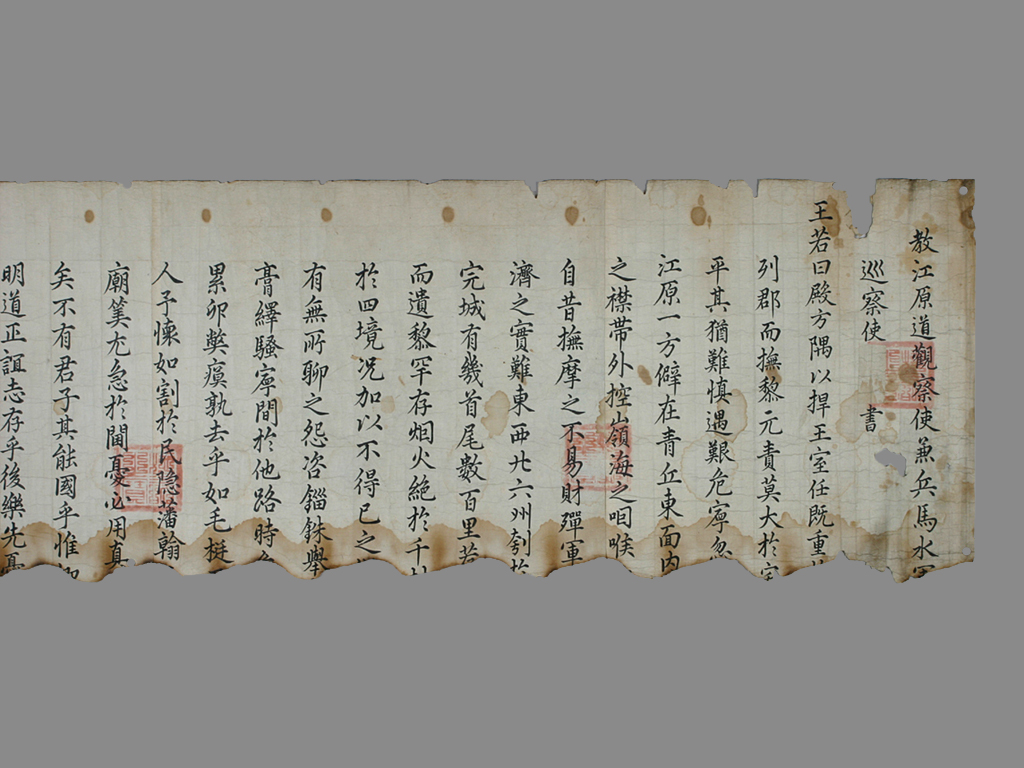 教江原道觀察使兼兵馬水軍
巡察使 書
王若曰殿方隅以捍王室任既重於
列郡而撫黎元責莫大於宣
平其猶難慎遇艱危寧忽
江原一方僻在青丘東面內
之襟帶外控嶺海之咽喉
自昔撫摩之不易財殫軍
濟之實難東西廿六州刳於
完城有幾首尾數百里若
而遺黎罕存烟火絶於千
於四境况加以不得已之
有無所聊之怨咨錙銖舉
膏繹騷寧閒於他路時
累卵獘瘼孰去乎如毛挺
人予懷如割於民隐藩翰
廟筭尤急於閫憂必用真
矣不有君子其能國乎惟
明道正誼志存乎後樂先憂